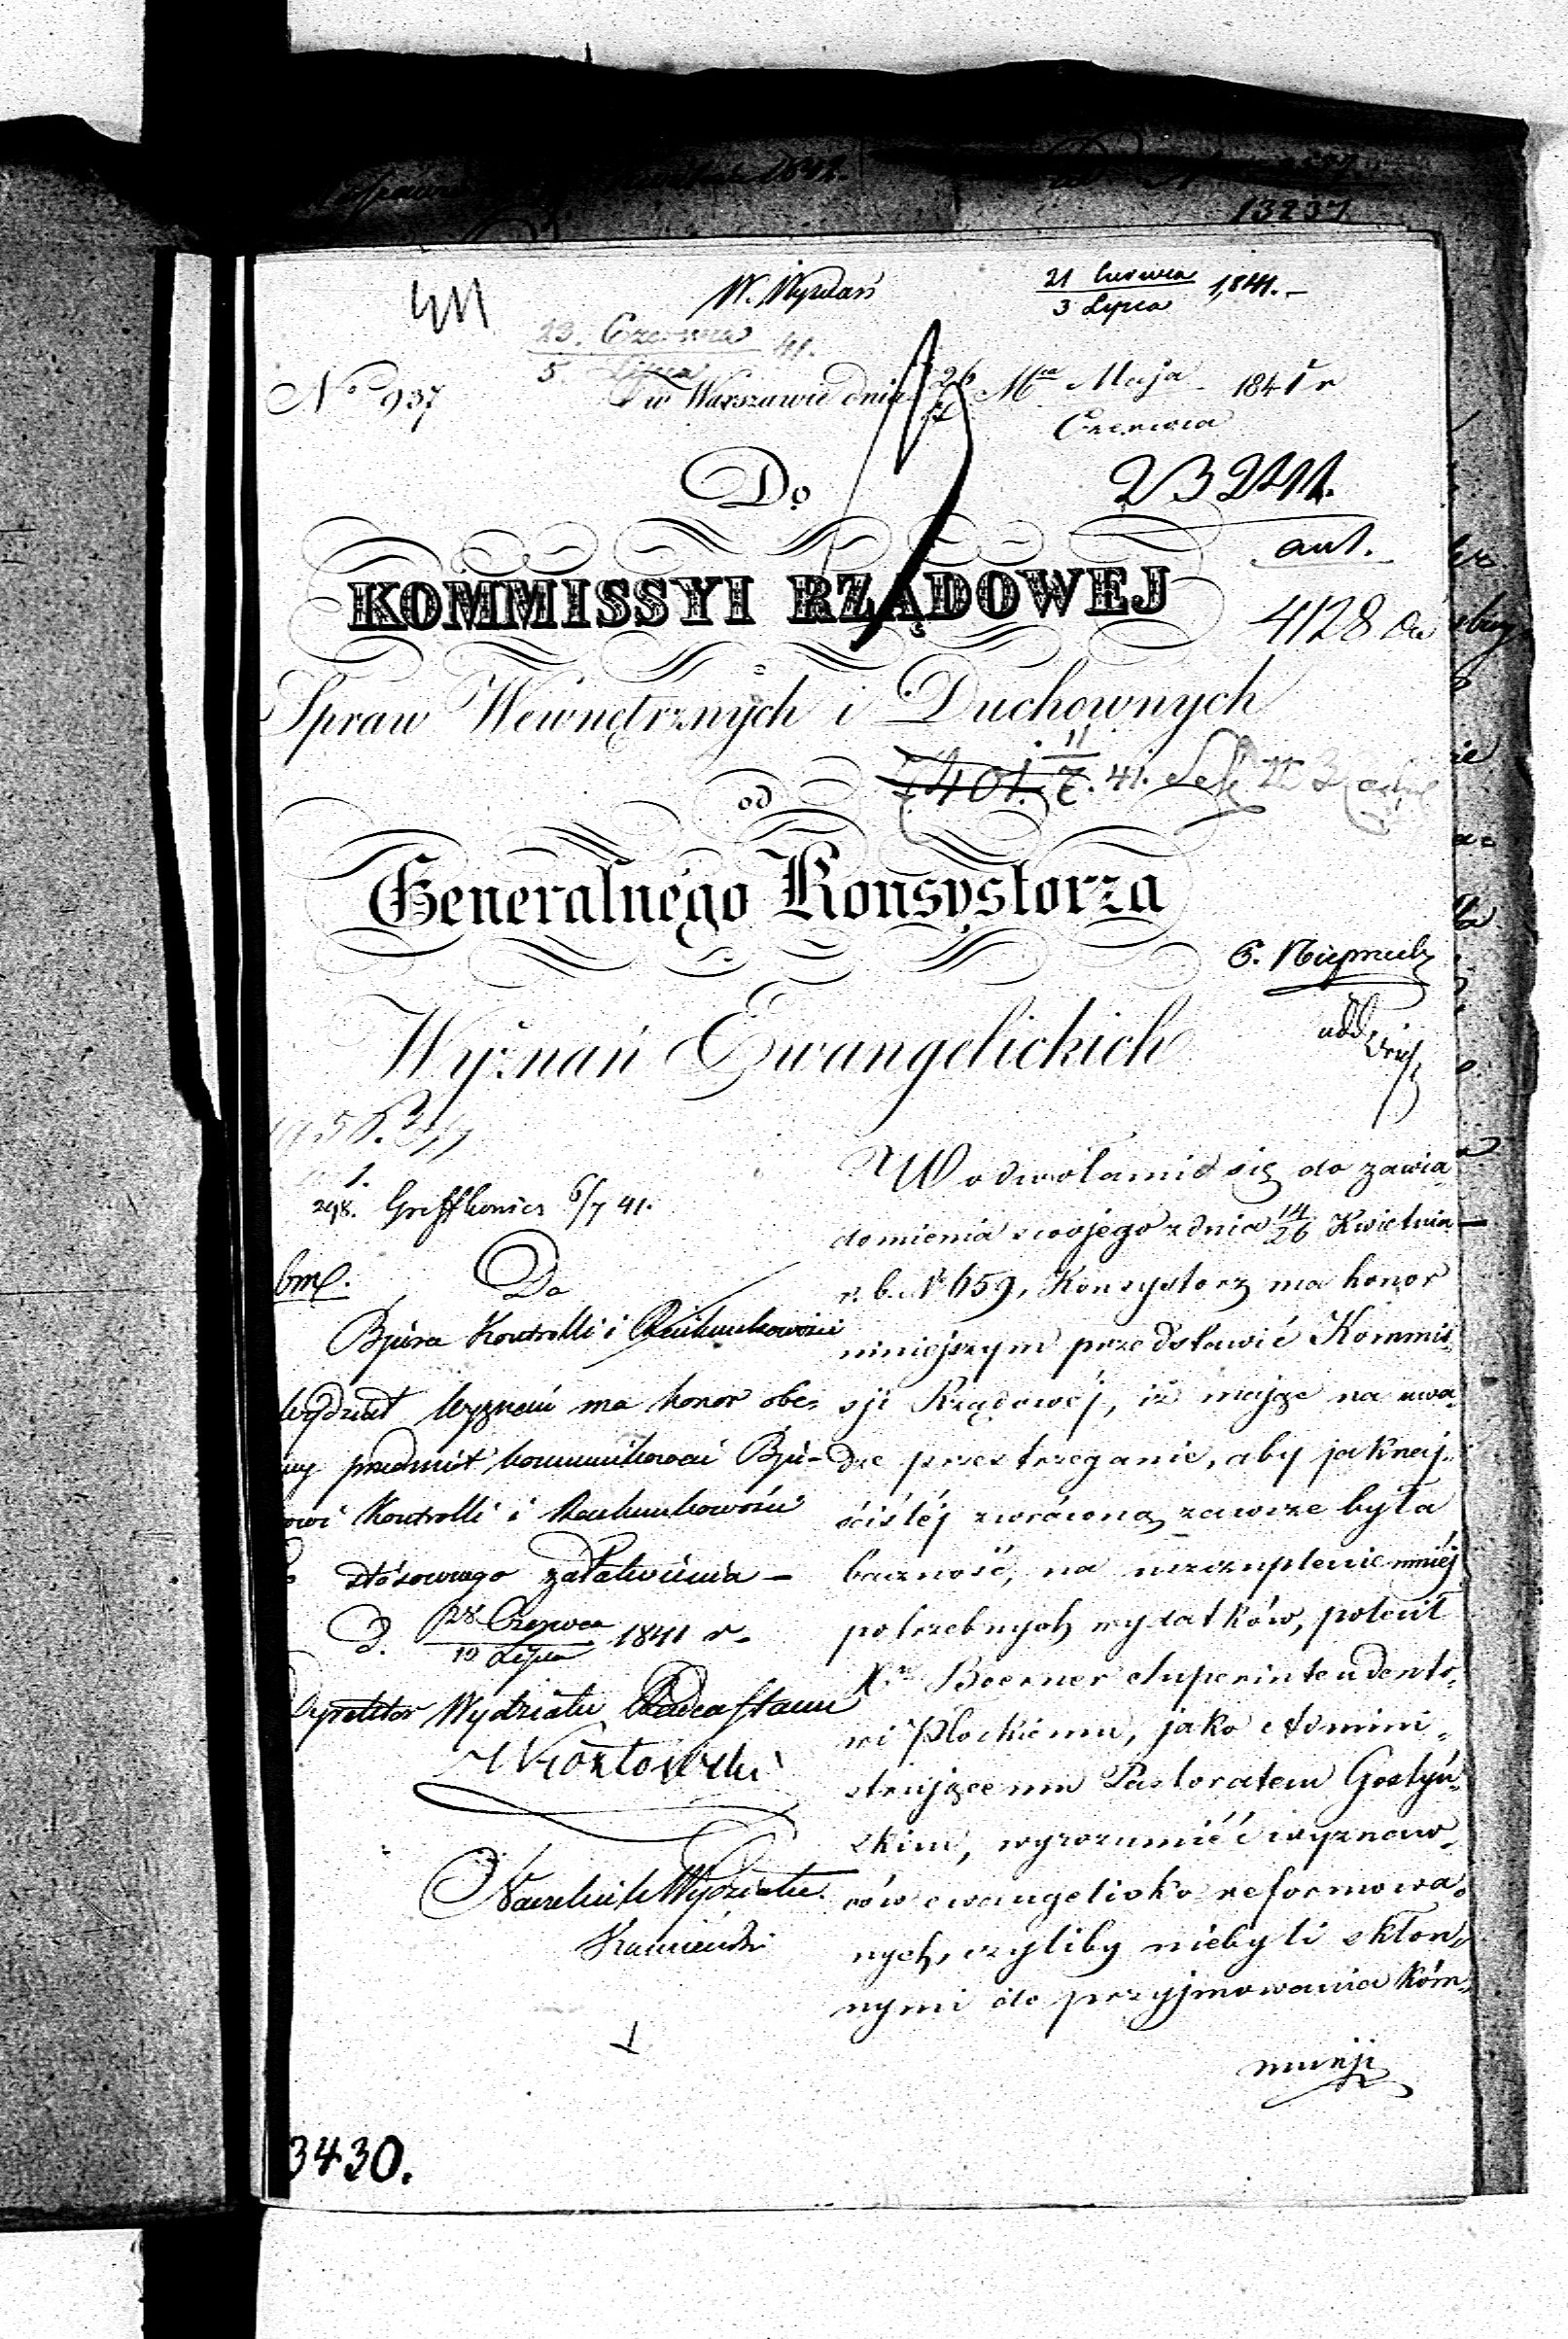 13237
W. Wyznań
21 Czerwca
3 Lipca 1841.
23. Czerwca
5. Lipca 41.
No 937
w Warszawie dnia 26 Mca Maja 1841 r
Czerwca
Do
23241.
ant.
KOMMISSYI RZĄDOWEJ
4128
Spraw Wewnętrznych i Duchownych
7401. 11/7. 41.
od
Generalnego Konsystorza
Wyznań Ewangelickich
298. 6/7 41.
Do
Bjura Kontrolli i Rachunkowości
Wydział Wyznań ma honor obe-
cny przedmiot kommunikować Bju-
rowi Kontrolli i Rachunkowości
stósownego załatwienia –
d. 28 Czerwca
10 Lipca 1841 r.
Dyrektor Wydziału Radca Stanu
Naczelnik Wydziału
Kamieński
W odwołaniu się do zawia
domienia swojego z dnia 14/26 Kwietnia
r. b. No 659, Konsystorz ma honor
niniejszym przedstawić Kommis
sji Rządowéj, iż mając na uwa-
dze przestrzeganie, aby jaknaj-
ściśléj zwróconą zawsze była
baczność, na uszczuplenie mniéj
potrzebnych wydatków, polecił
Xu Boerner Superintendento-
wi Płockiemu, jako Admini-
strującemu Pastoratem Gostyń-
skim, wyrozumiéć wyznaw-
ców ewangelicko reformowa-
nych, czyliby niebyli skłon-
nymi do przyjmowania kóm-
munji
3430.